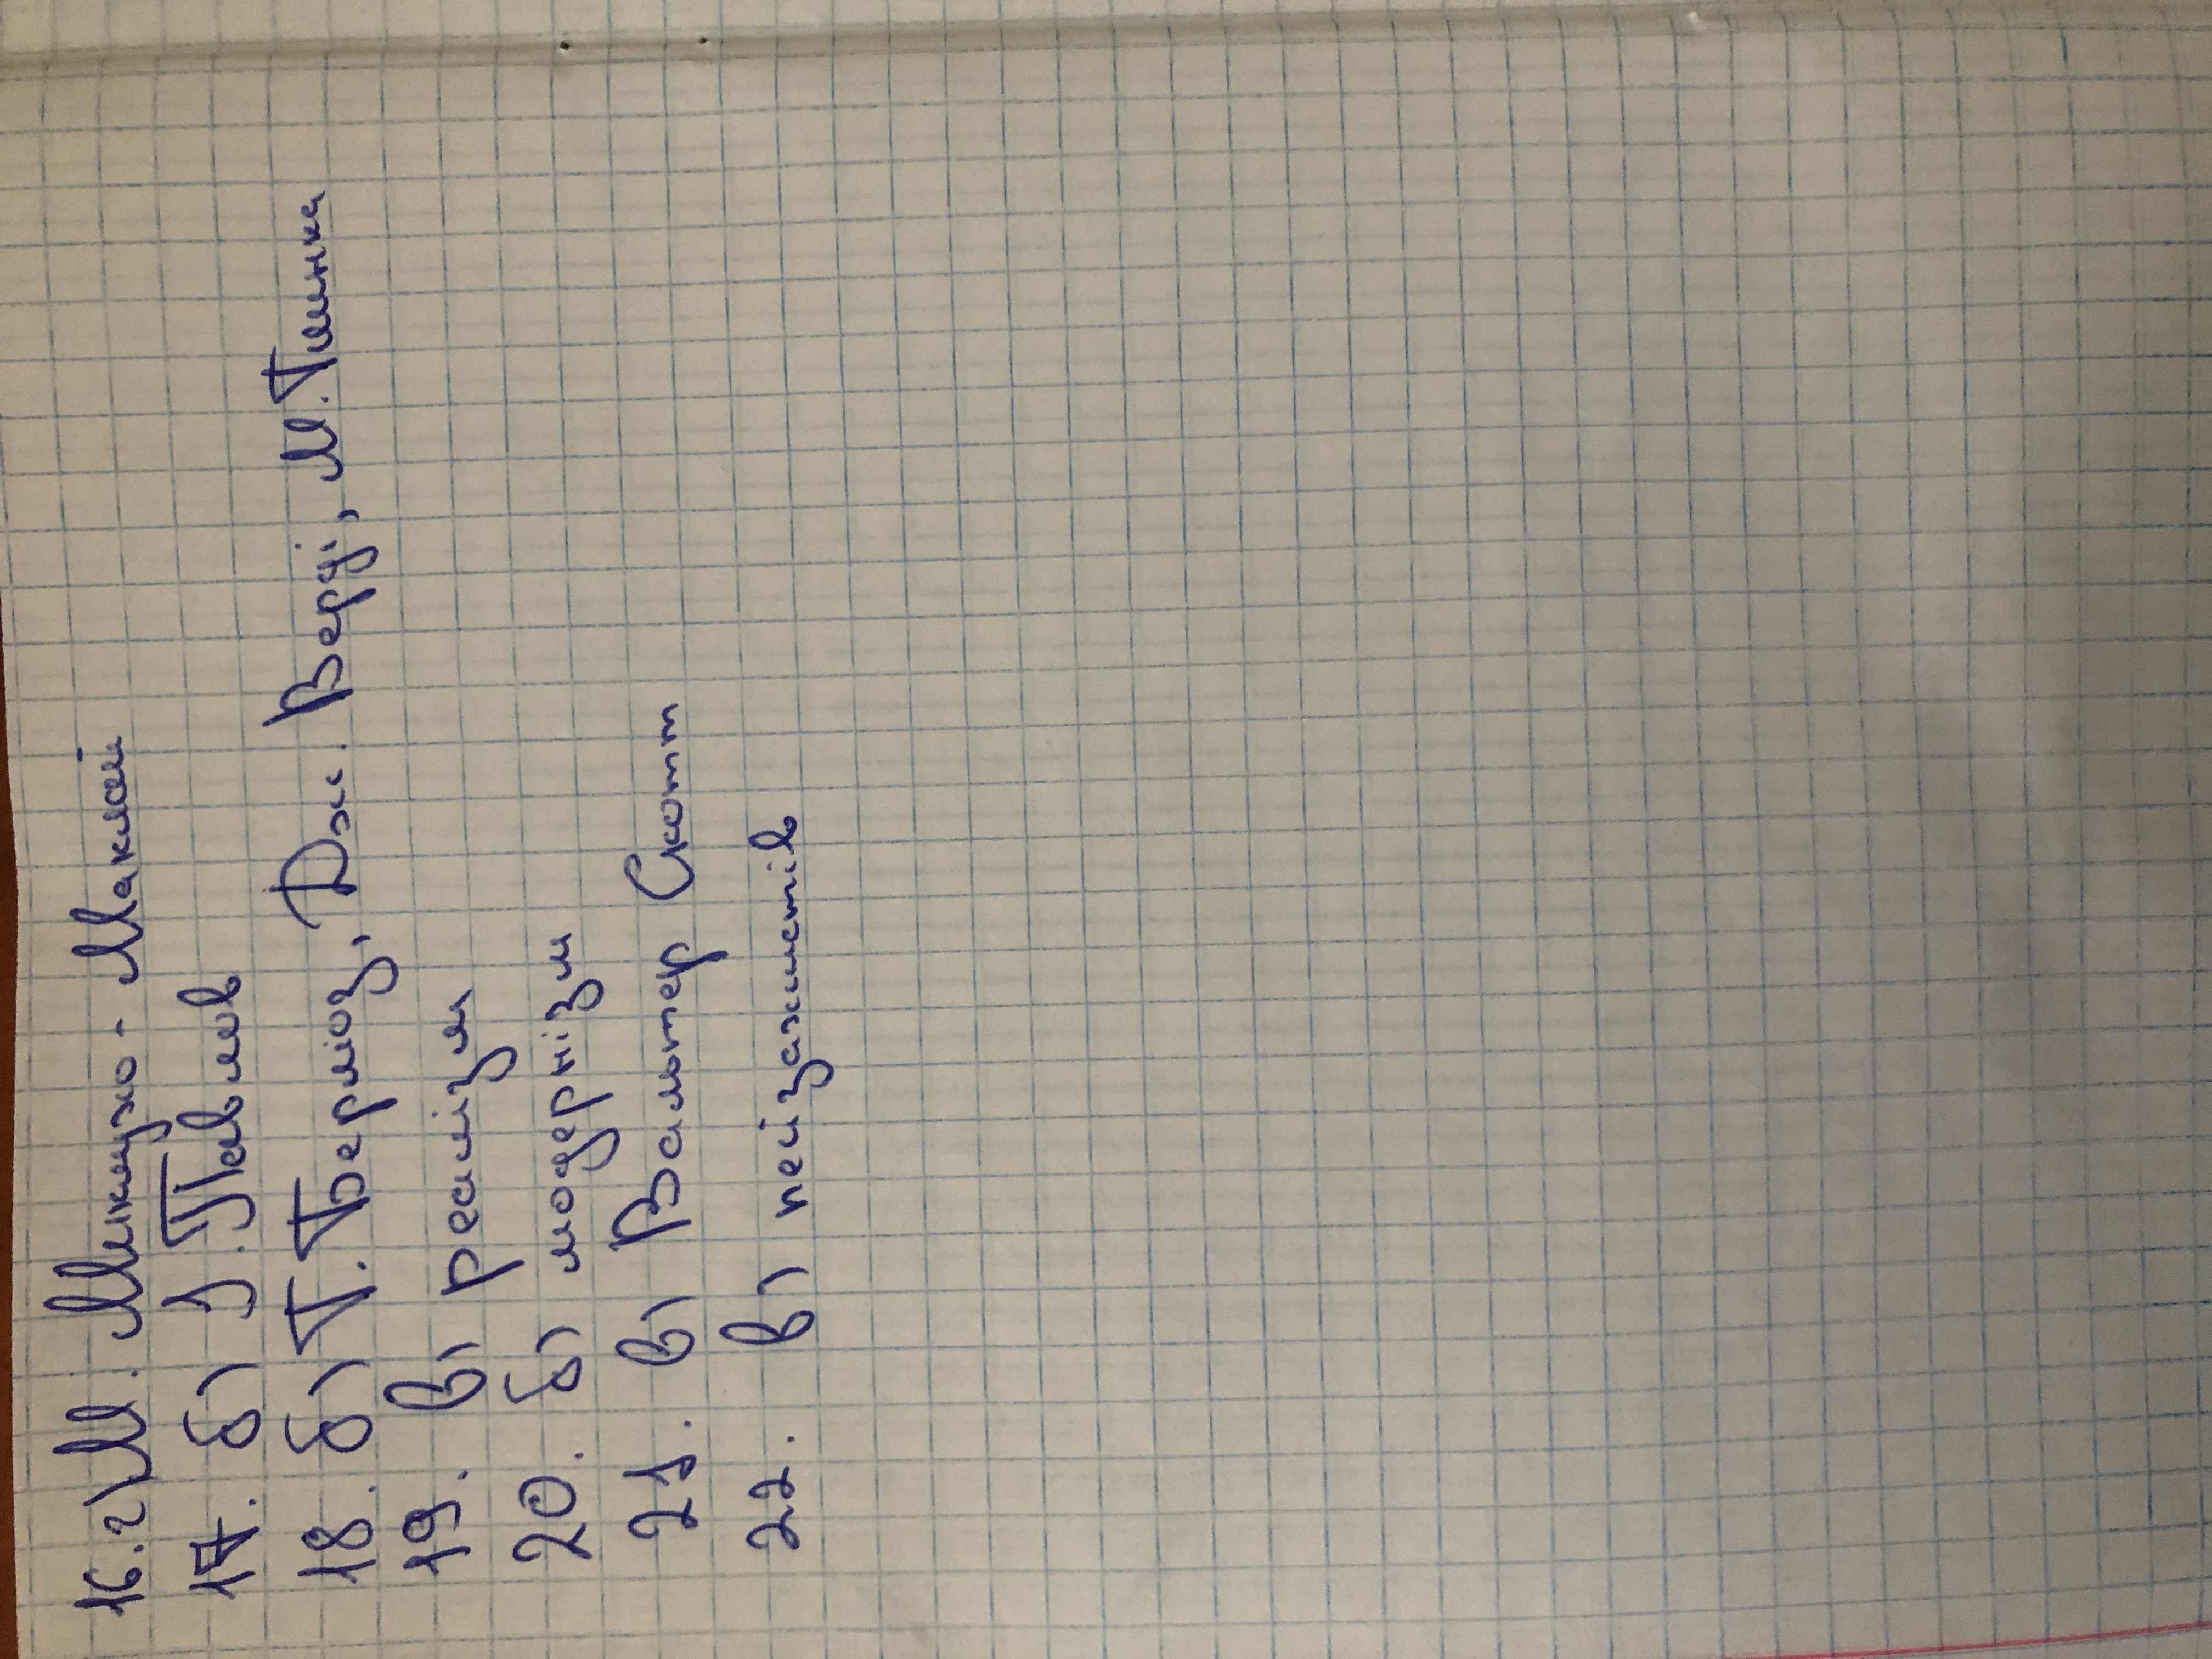 16. г) М. Миклухо-Маклай
17. б) І. Павлов
18. б) Г. Берліоз, Дж. Верді, М. Глинка
19. в) реалізм
20. б) модернізм
21. в) Вальтер Скотт
22. в) пейзажистів